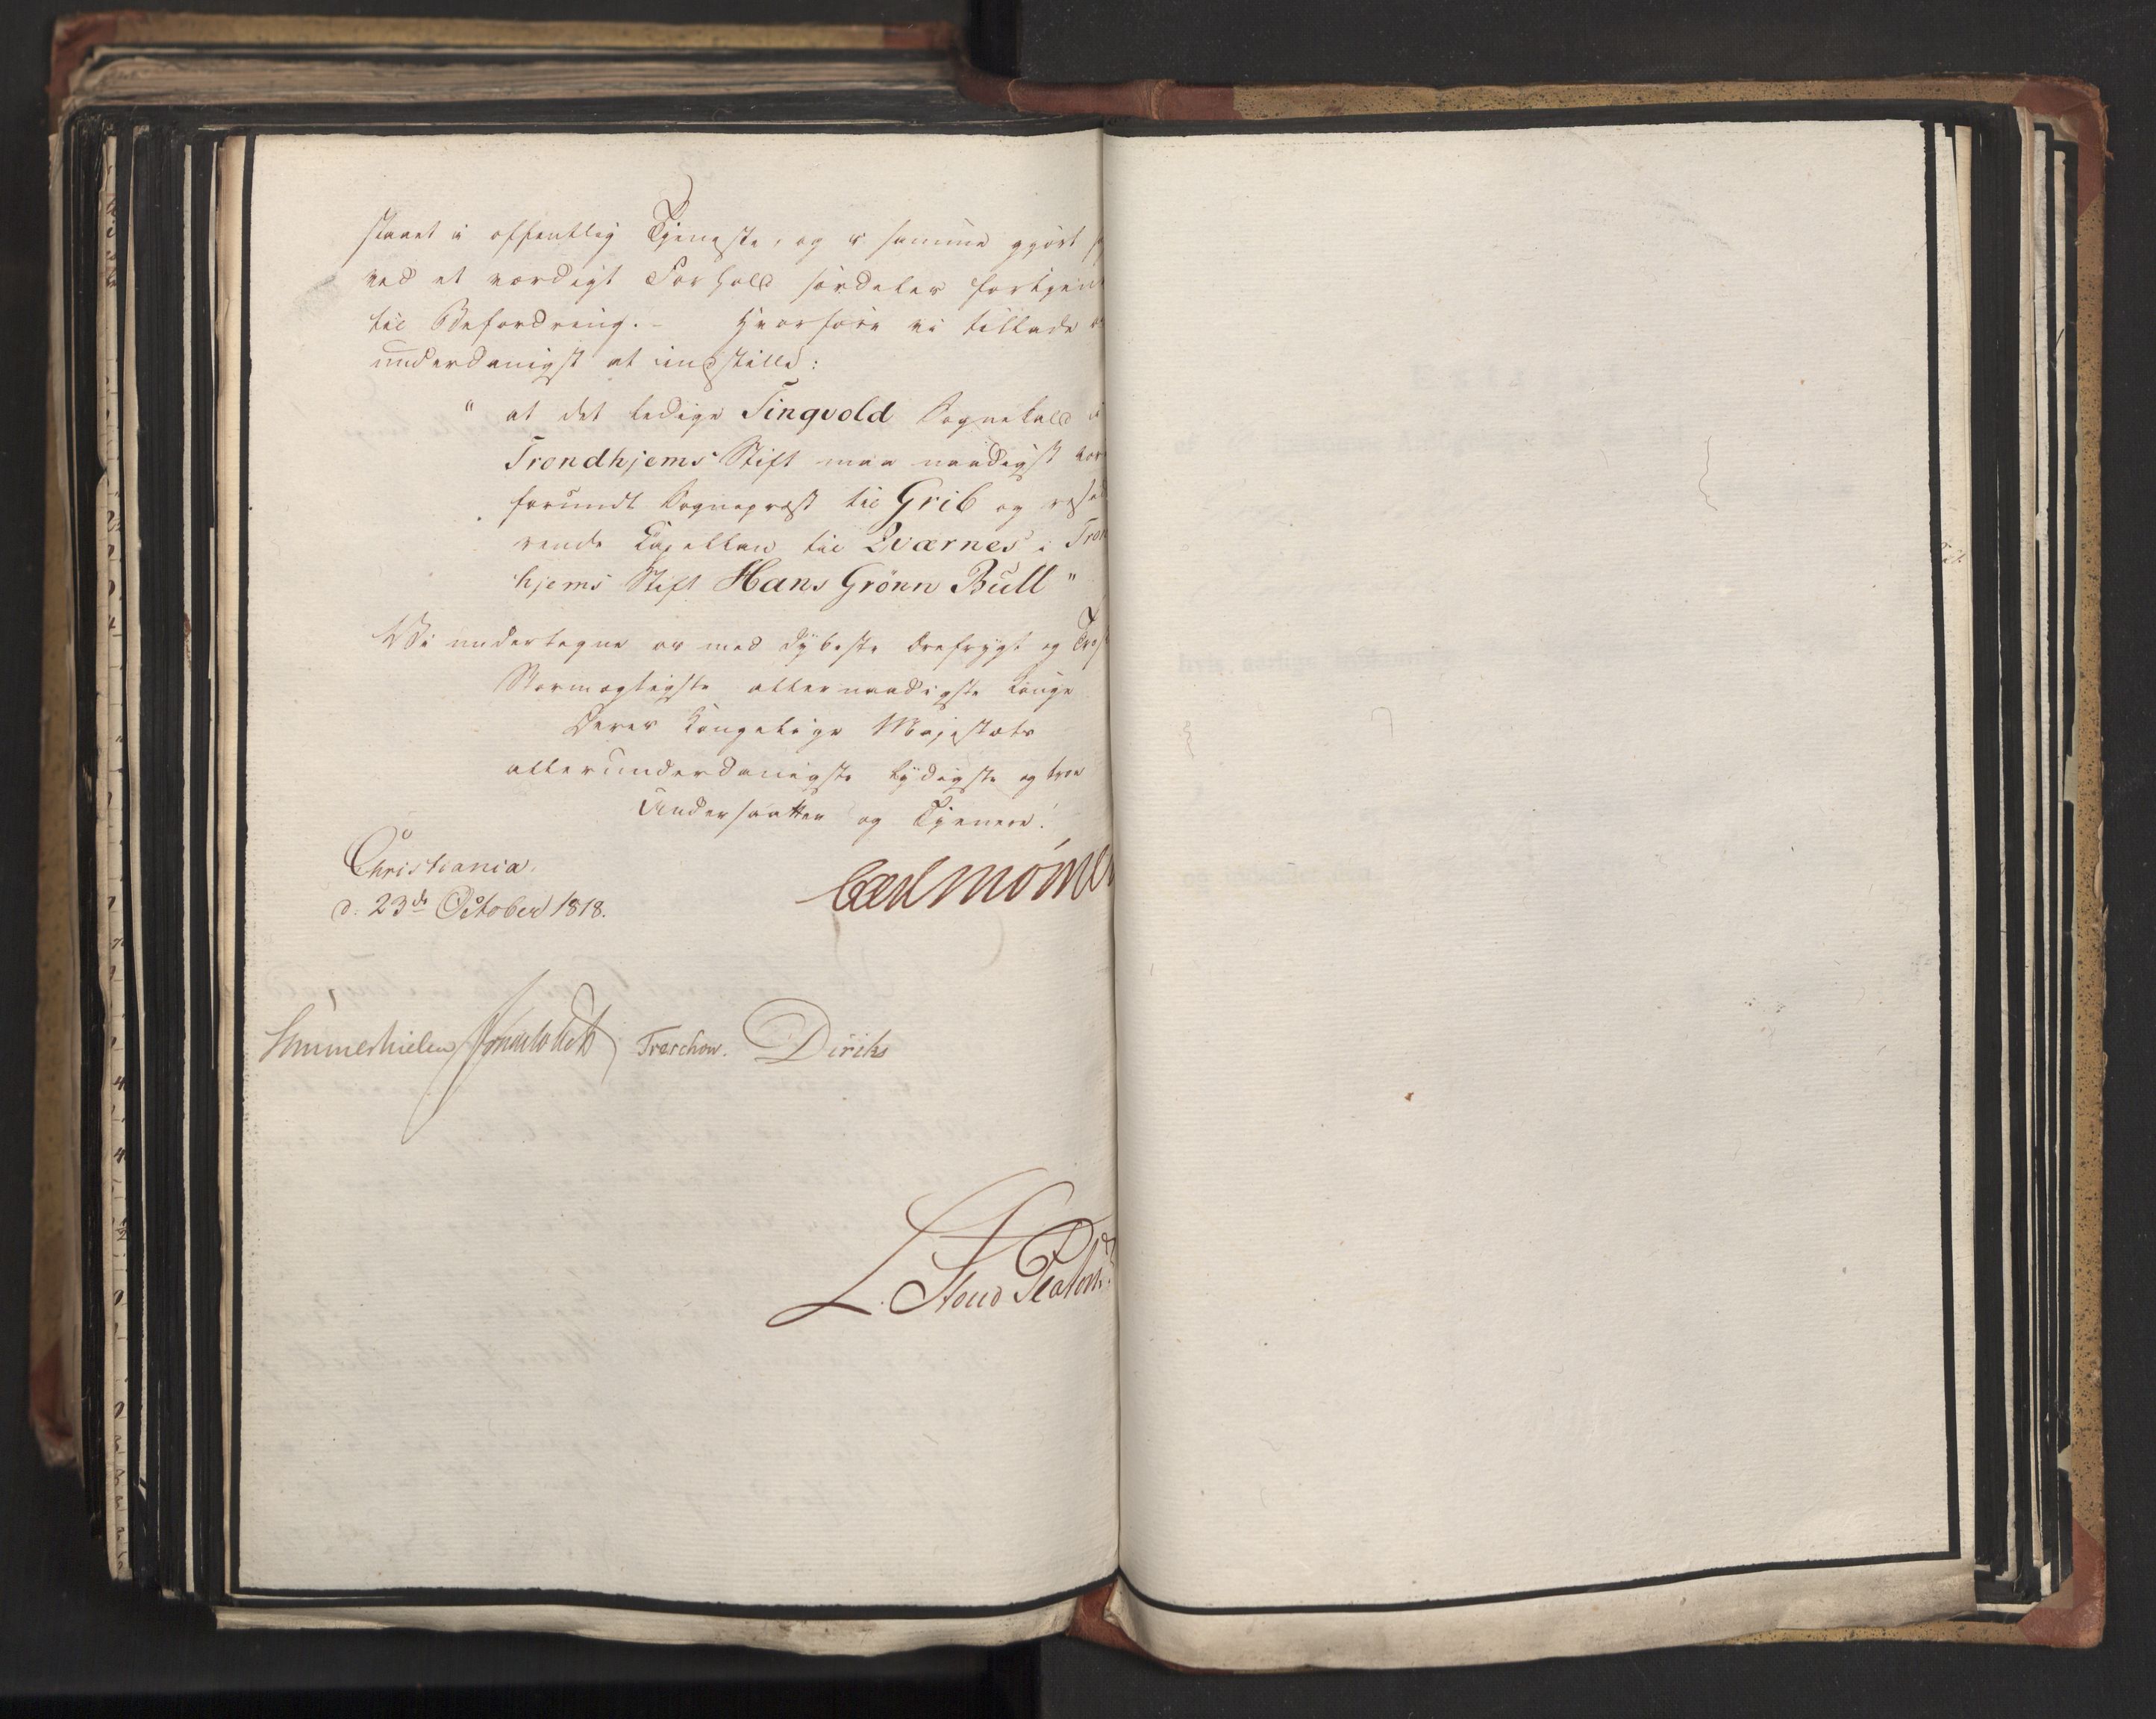 staaet i offentlig Tjeneste, og i samme gjort
ved et værdigt Forhold særdeles fortjen
til Befordring. - Hvorfore vi tillade
underdanigst at indstille:
" at det ledige Tingvold Sognekald i
Trondhjems Stift maa naadigst vor
forundt Sogneprest til Grib og resid
rende Capellan til Qværnes i Tron
hjems Stift Hans Grönn Bull "
Vi undertegne os med dybeste Ærefrygt og
Stormægtigste allernaadigste Konge
Deres Kongelige Majestæts
allerunderdanigste lydigste og troe
Undersaatter og Tjenere.
Christiania.
d: 23de October 1818.
Carl Mörner
Sommerhielm Treschow. Diriks
L. Stoud Platou